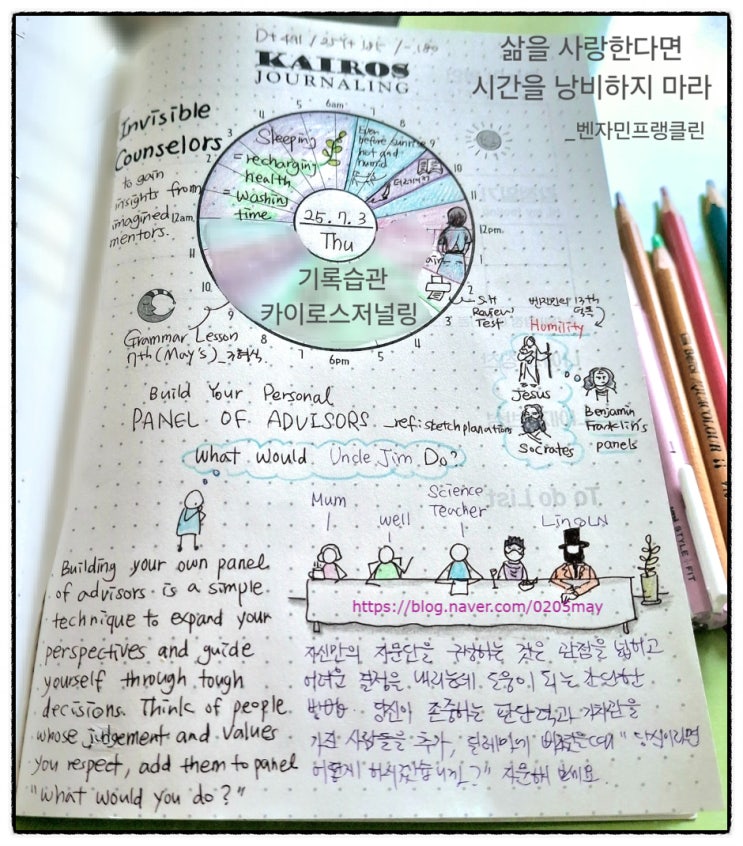 삶을 사랑한다면
시간을 낭비하지 마라
_벤자민프랭클린
KAIROS
JOURNALING
Invisible
Counselors
to gain
insights from
imagined
mentors.
4 5 6am 7 8 9 10 11 12pm. 1 2 3 4 5 6pm 7 8 9 10 11 12am. 2 3
Sleeping
= recharging
health
= washing
time
Even
before sunrise
hot and
humid
25. 7. 3
Thu
기록습관
카이로스저널링
air
SH
Review
Test
Grammar Lesson
7th (May's)
13th
Humility
Jesus
Socrates
Benjamin
Franklin's
panels
Build Your Personal
PANEL OF ADVISORS _ref: sketchplanations
What Would Uncle Jim Do?
Mum
well
Science
Teacher
LINCOLN
https://blog.naver.com/0205may
Building your own panel
of advisors is a simple
technique to expand your
perspectives and guide
yourself through tough
decisions. Think of people
whose judgement and values
you respect, add them to panel
"what would you do?"
자신만의 자문단을 구성하는 것은 관점을 넓히고
어려운 결정을 내리는데 도움이 되는 간단한
방법. 당신이 존중하는 판단력과 가치관을
가진 사람들을 추가, 딜레마에 빠졌을때 "당신이라면
어떻게 하시겠습니까?" 자문해 보세요
To do List